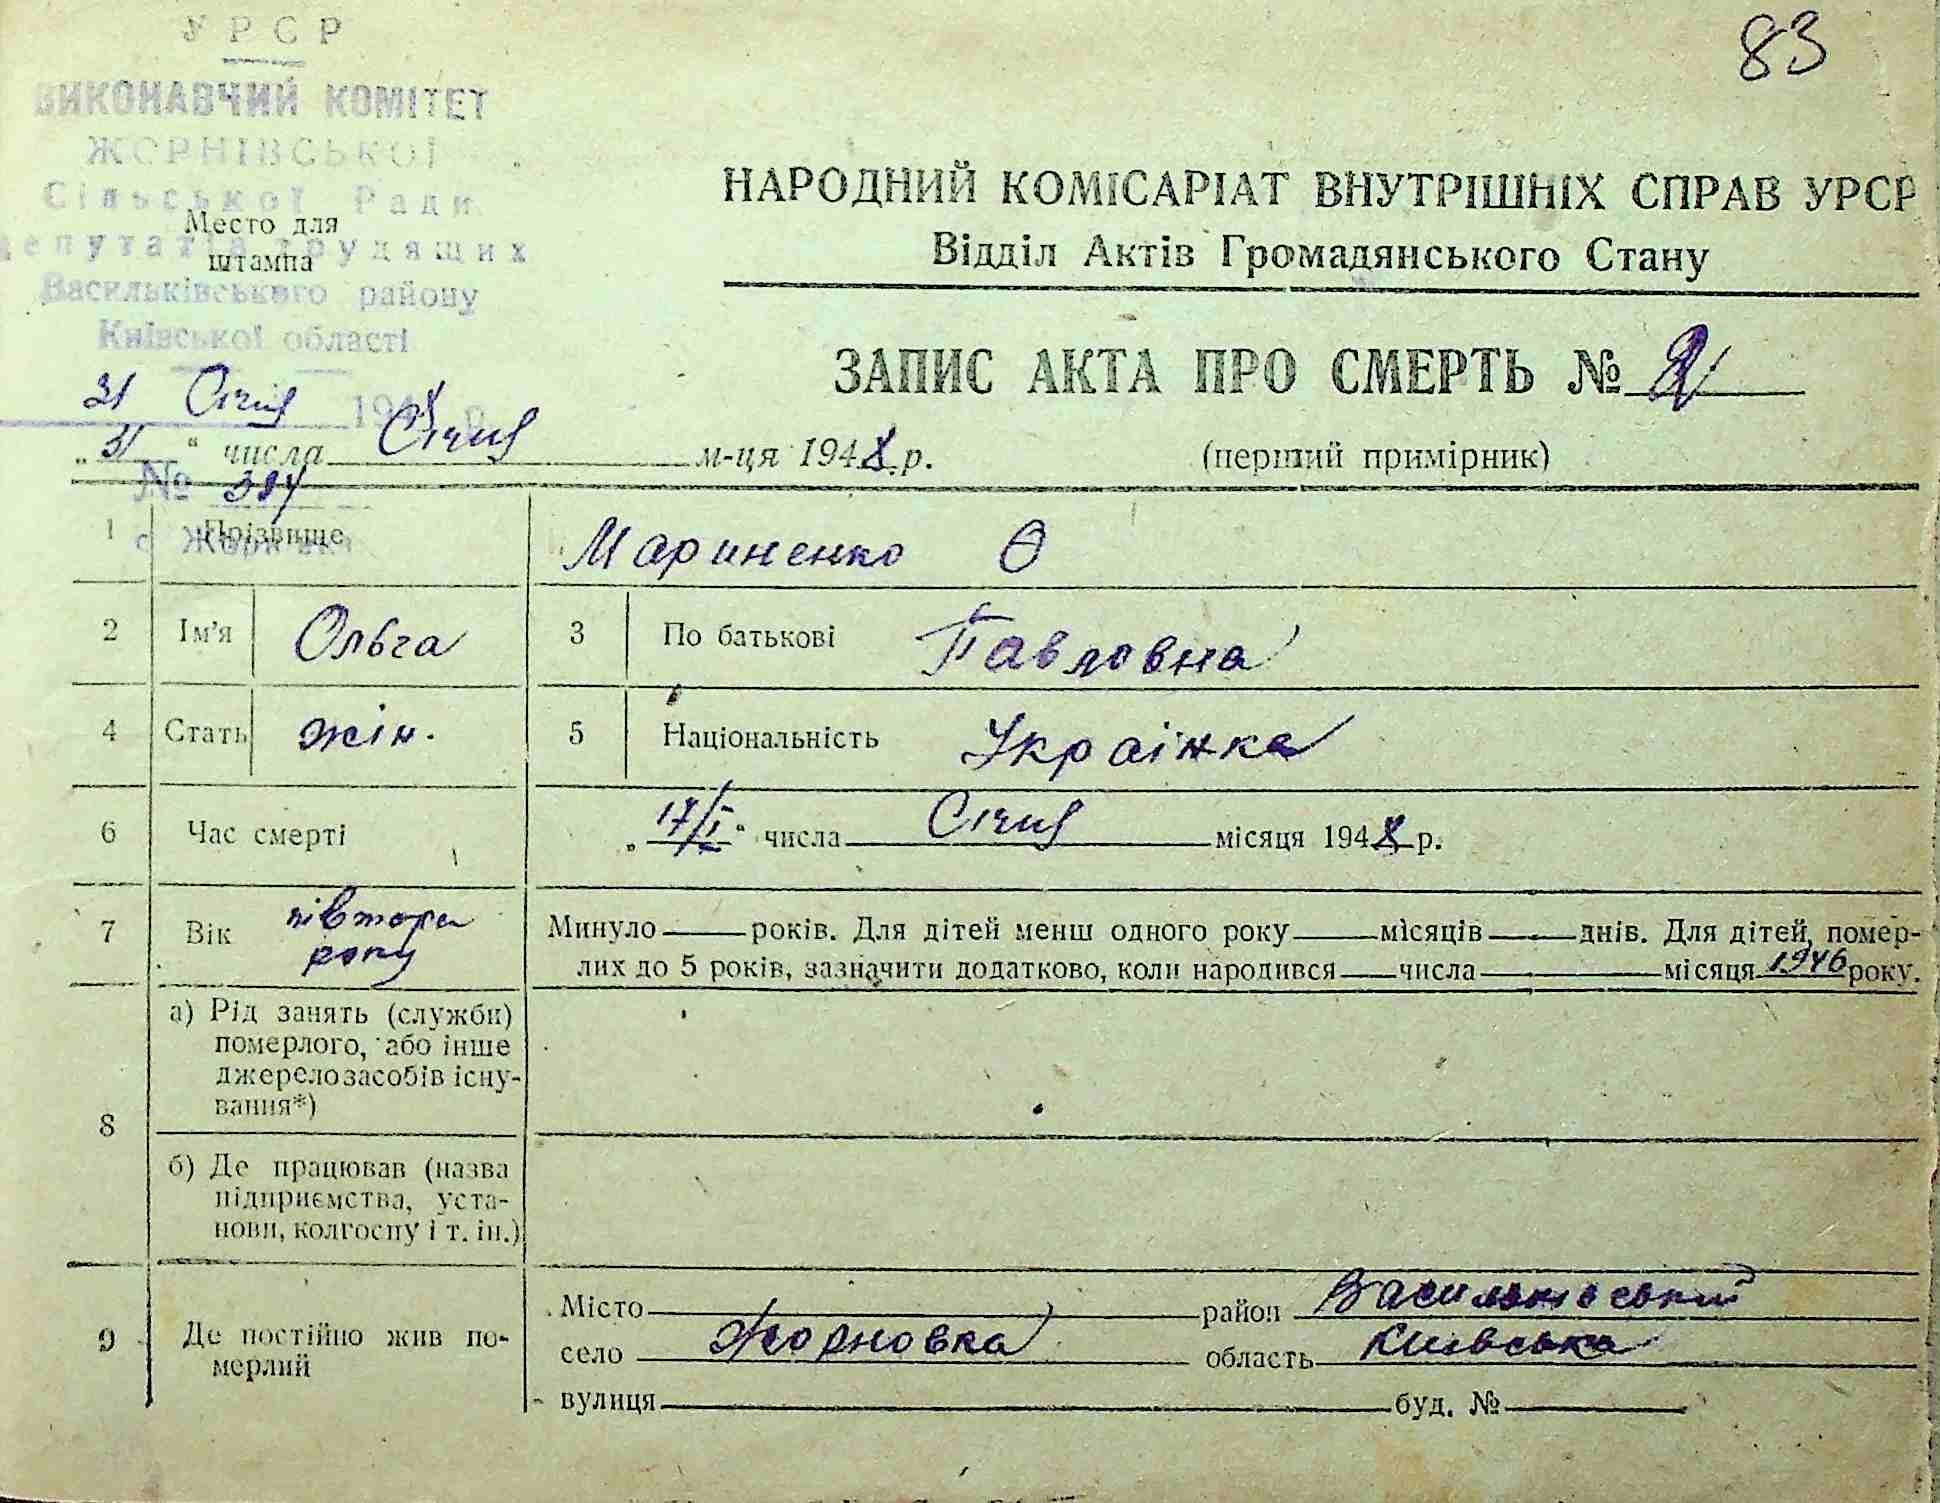 83
УРСР
ВИКОНАВЧИЙ КОМІТЕТ
ЖОРНІВСЬКОЇ
Сільської Ради
депутатів трудящих
Васильківського району
Київської області
31 Січня 1948 р.
№ 394
Место для
штампа
НАРОДНИЙ КОМІСАРІАТ ВНУТРІШНІХ СПРАВ УРСР
Відділ Актів Громадянського Стану
ЗАПИС АКТА ПРО СМЕРТЬ № 2
„31“ числа Січня м-ця 1948 р.
(перший примірник)
1 Прізвище Мариненко О
2 Ім'я Ольга 3 По батькові Павловна
4 Стать жін. 5 Національність Украінка
6 Час смерті „17/I“ числа Січня місяця 1948 р.
7 Вік півтора року Минуло років. Для дітей менш одного року місяців днів. Для дітей, помер-
лих до 5 років, зазначити додатково, коли народився числа місяця 1946 року.
8 а) Рід занять (служби)
померлого, або інше
джерело засобів існу-
вання*)
б) Де працював (назва
підприємства, уста-
нови, колгоспу і т. ін.)
9 Де постійно жив по-
мерлий
Місто район Васильківський
село Жорновка область Київська
вулиця буд. №